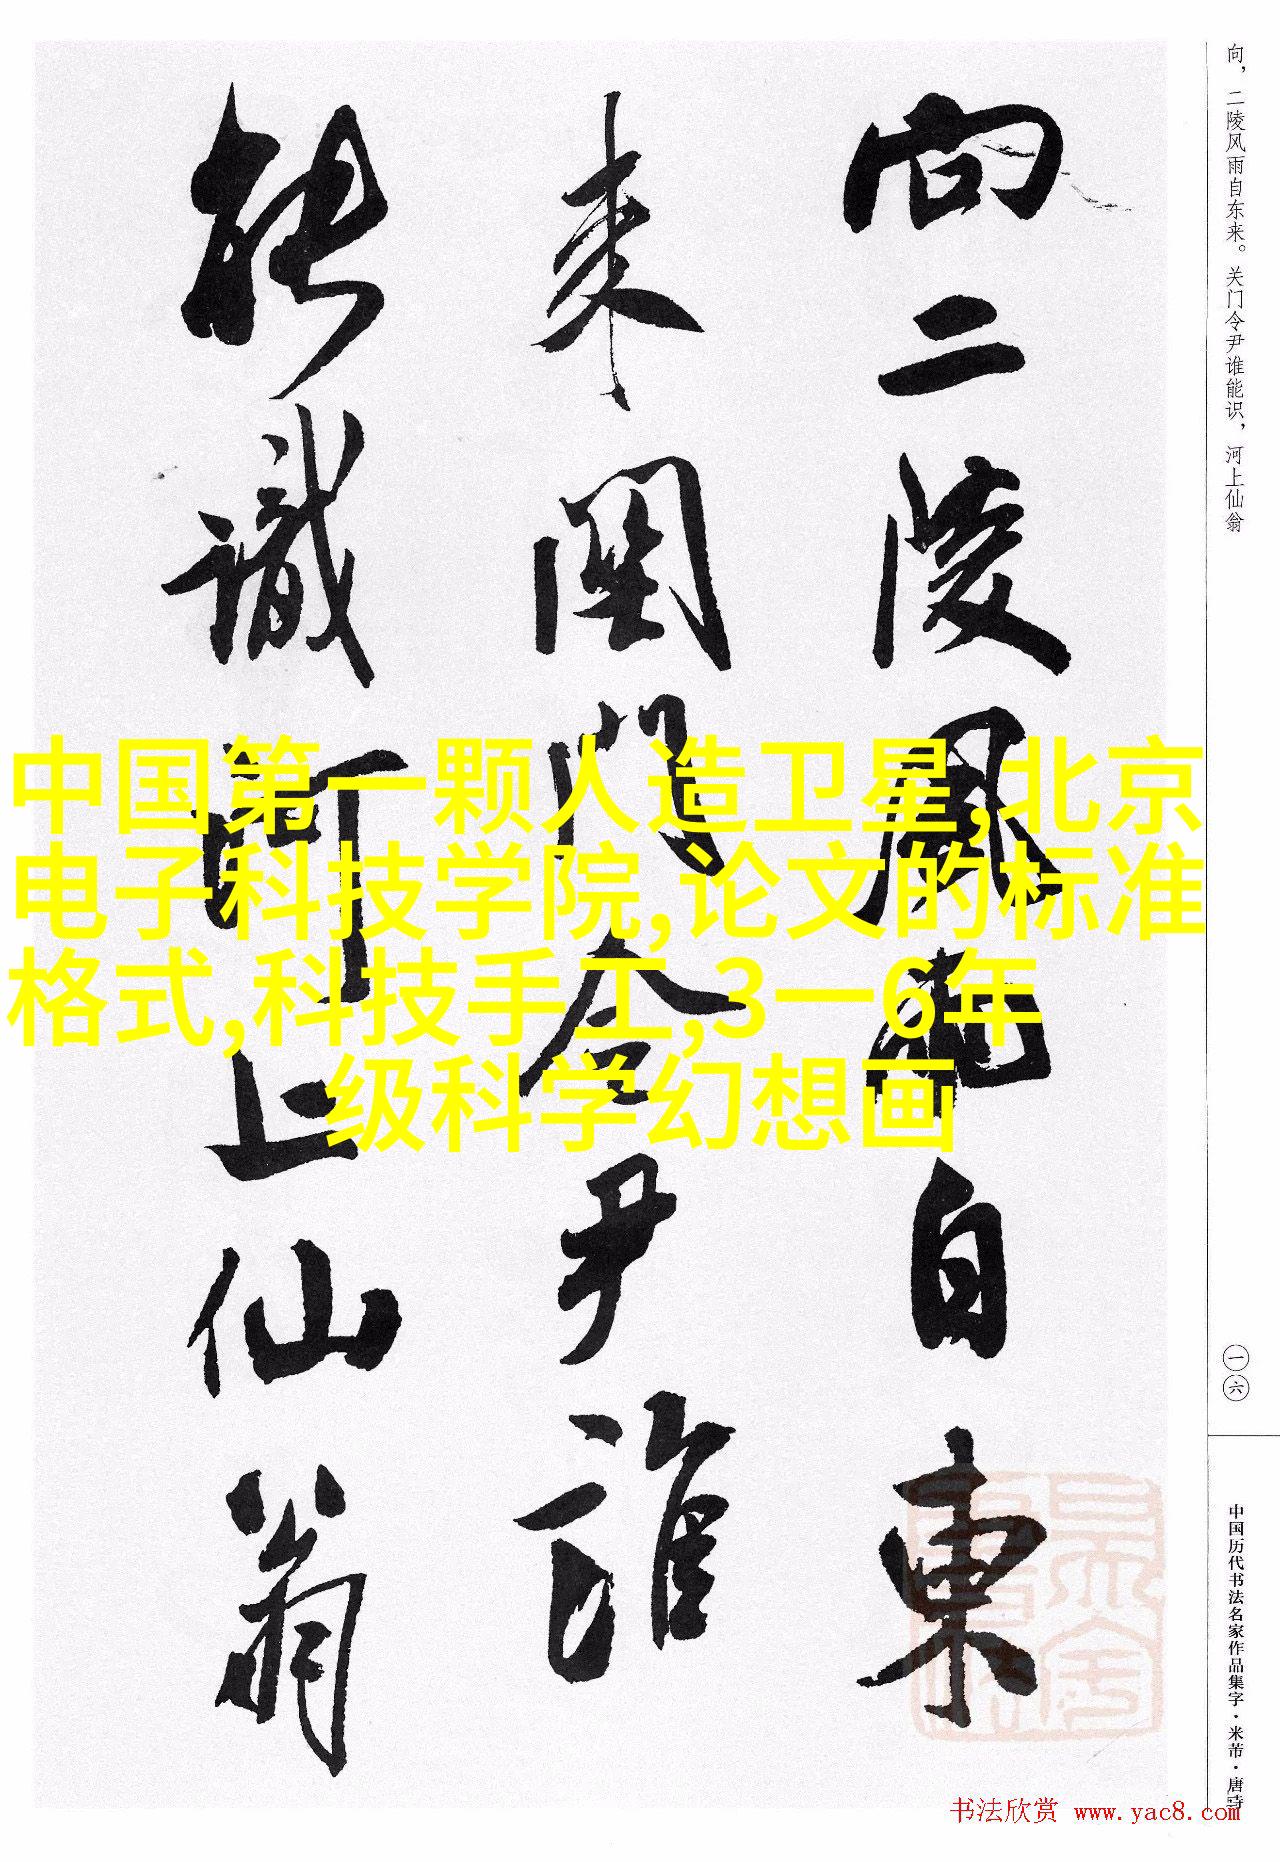 向二陵風雨自東
来関門令尹誰
能識河上仙翁
中国第一颗人造卫星,北京
电子科技学院,论文的标准
格式,科技手工,3一6年
级科学幻想画
向，二陵风雨自东来。关门令尹谁能识，河上仙翁
一六
中国历代书法名家作品集字·米芾·唐诗
书法欣赏 www.yac8.com